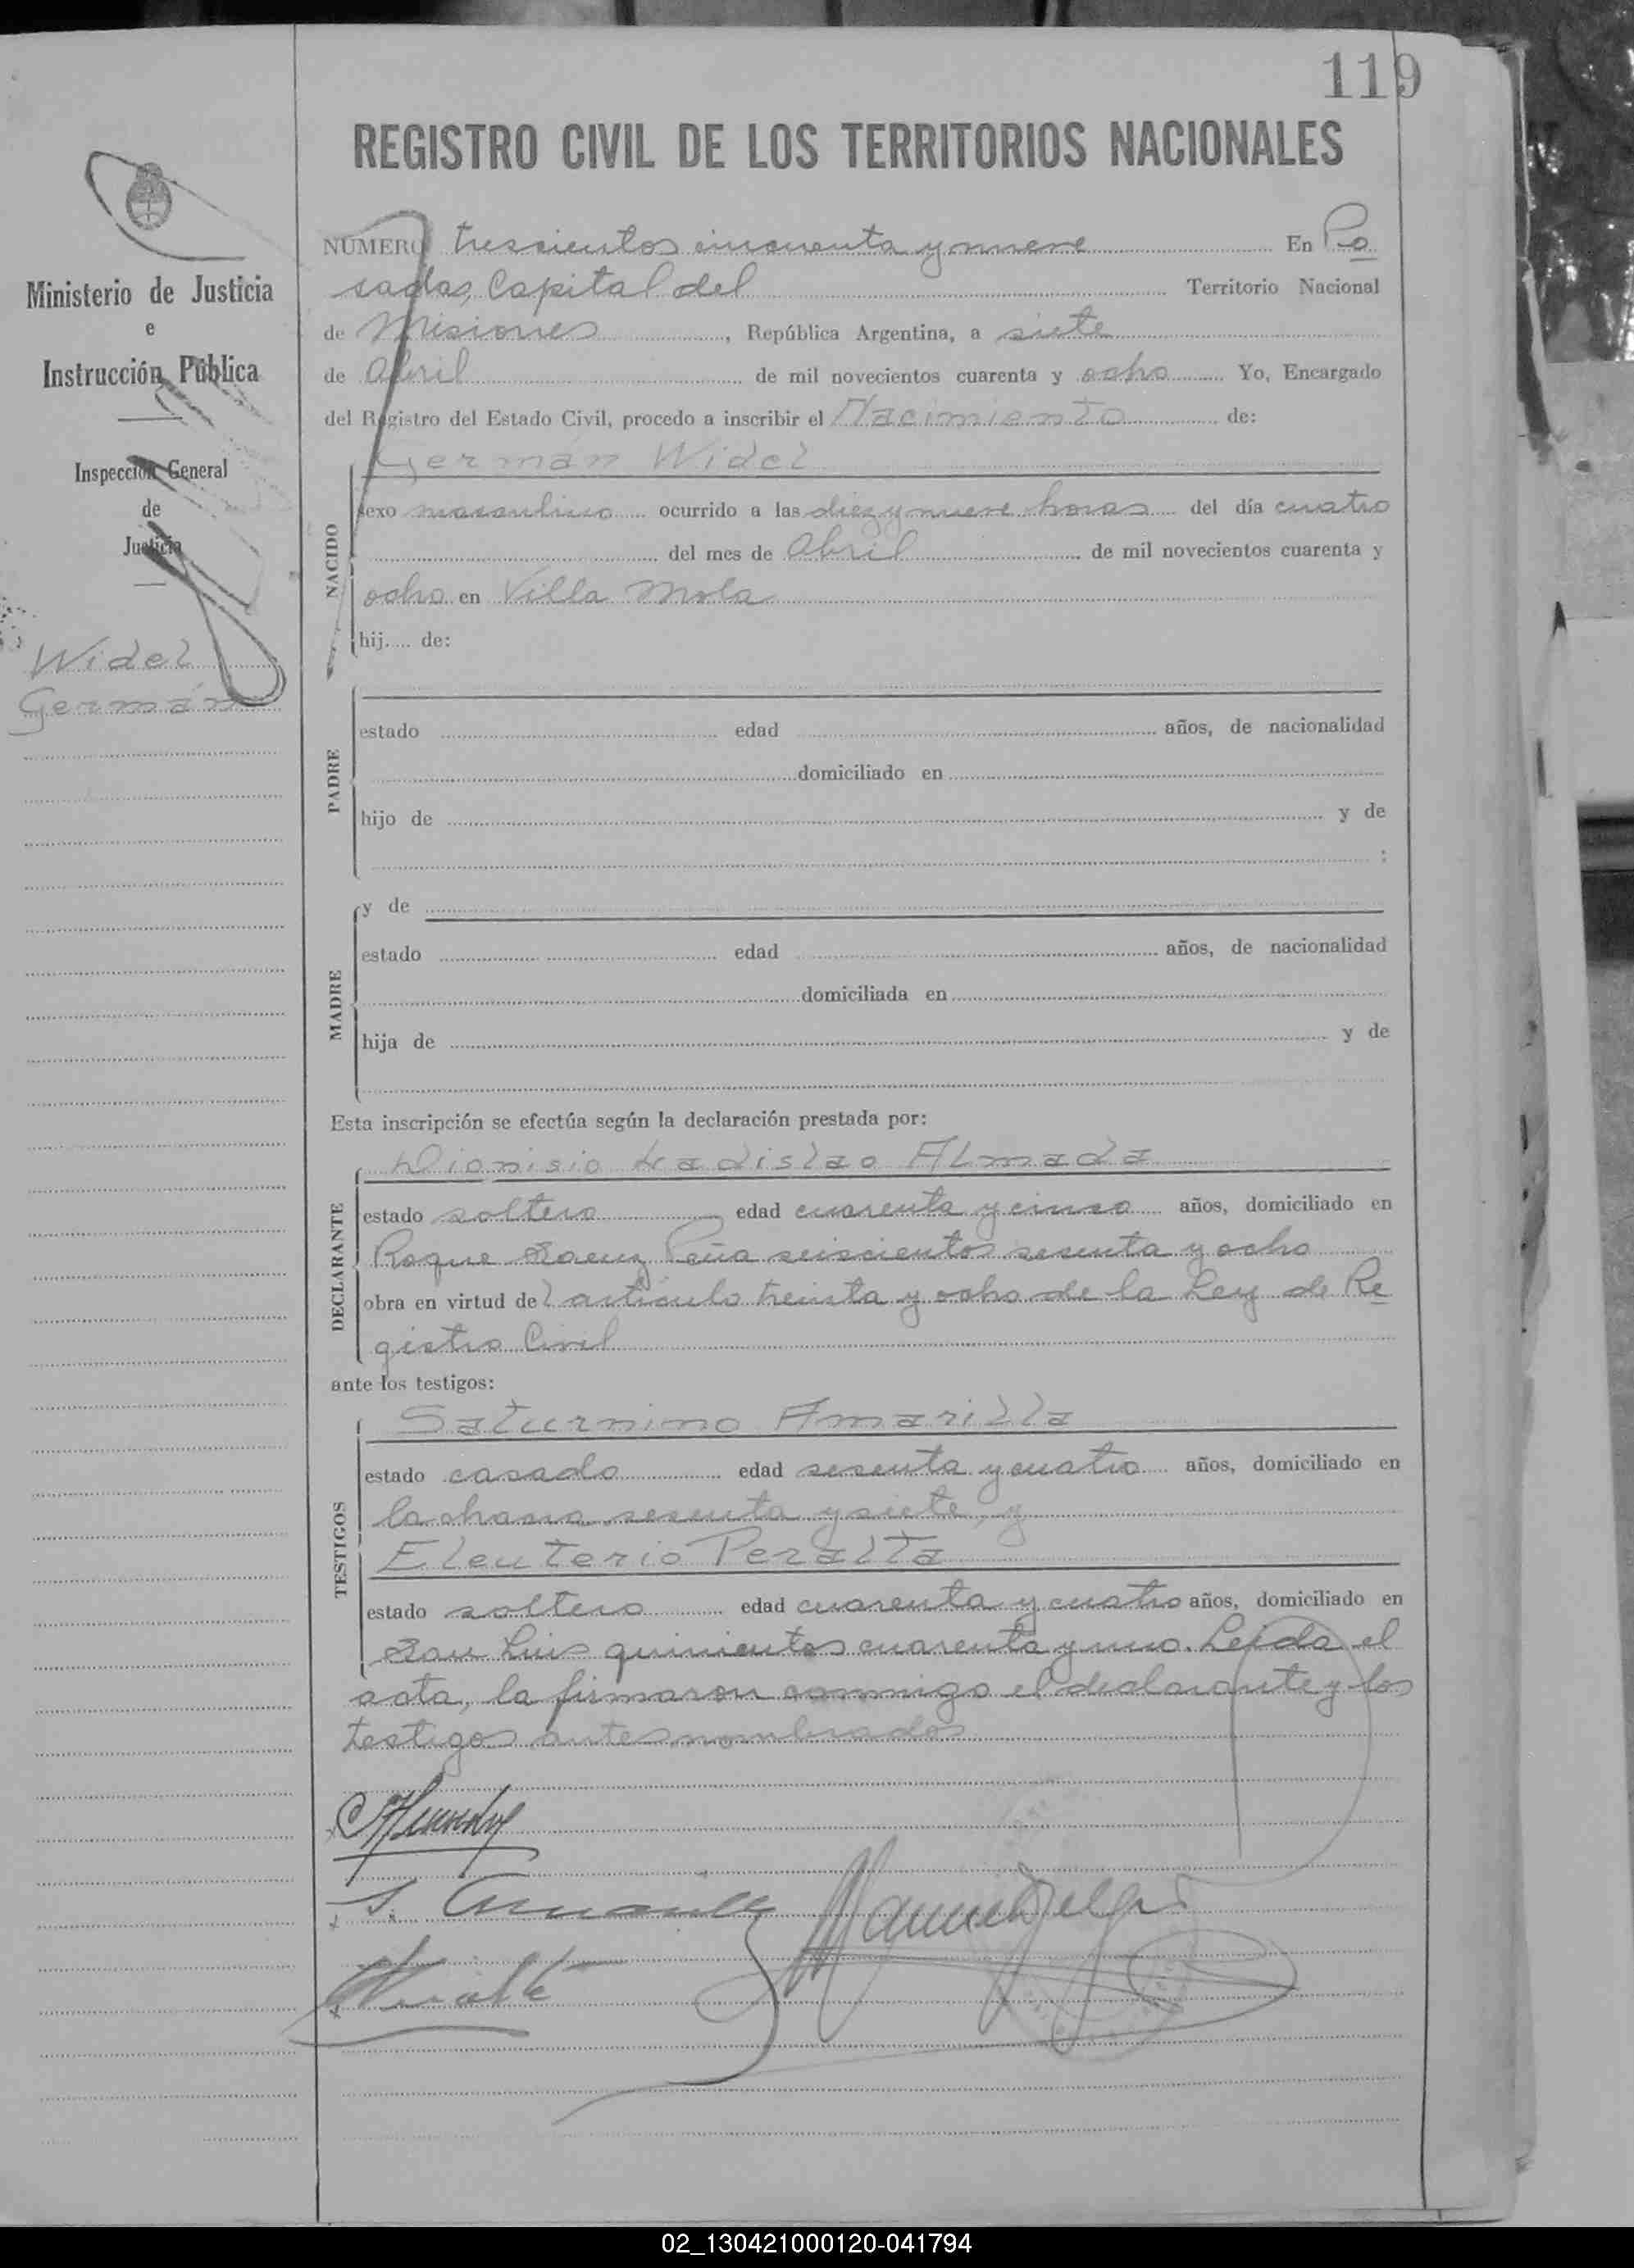 119
REGISTRO CIVIL DE LOS TERRITORIOS NACIONALES
Ministerio de Justicia
e
Instrucción Pública
Inspección General
de
Justicia
Widel
Germán
NUMERO trescientos cincuenta y nueve En Po
sadas, Capital del Territorio Nacional
de Misiones, República Argentina, a siete
de Abril de mil novecientos cuarenta y ocho Yo, Encargado
del Registro del Estado Civil, procedo a inscribir el Nacimiento de:
Germán Widel
NACIDO
sexo masculino ocurrido a las diez y nueve horas del día cuatro
del mes de Abril de mil novecientos cuarenta y
ocho en Villa Mola
hij..... de:
PADRE
estado edad años, de nacionalidad
domiciliado en
hijo de y de
:
MADRE
y de
estado edad años, de nacionalidad
domiciliada en
hija de y de
Esta inscripción se efectúa según la declaración prestada por:
Dionisio Ladislao Almada
DECLARANTE
estado soltero edad cuarenta y cinco años, domiciliado en
Roque Saenz Peña seiscientos sesenta y ocho
obra en virtud del artículo treinta y ocho de la Ley de Re
gistro Civil
ante los testigos:
Saturnino Amarilla
TESTIGOS
estado casado edad sesenta y cuatro años, domiciliado en
la chacra sesenta y siete, y
Eleuterio Peralta
estado soltero edad cuarenta y cuatro años, domiciliado en
San Luis quinientos cuarenta y uno. Leida el
acta, la firmaron conmigo el declarante y los
testigos antes nombrados
S. Amarilla
02_130421000120-041794